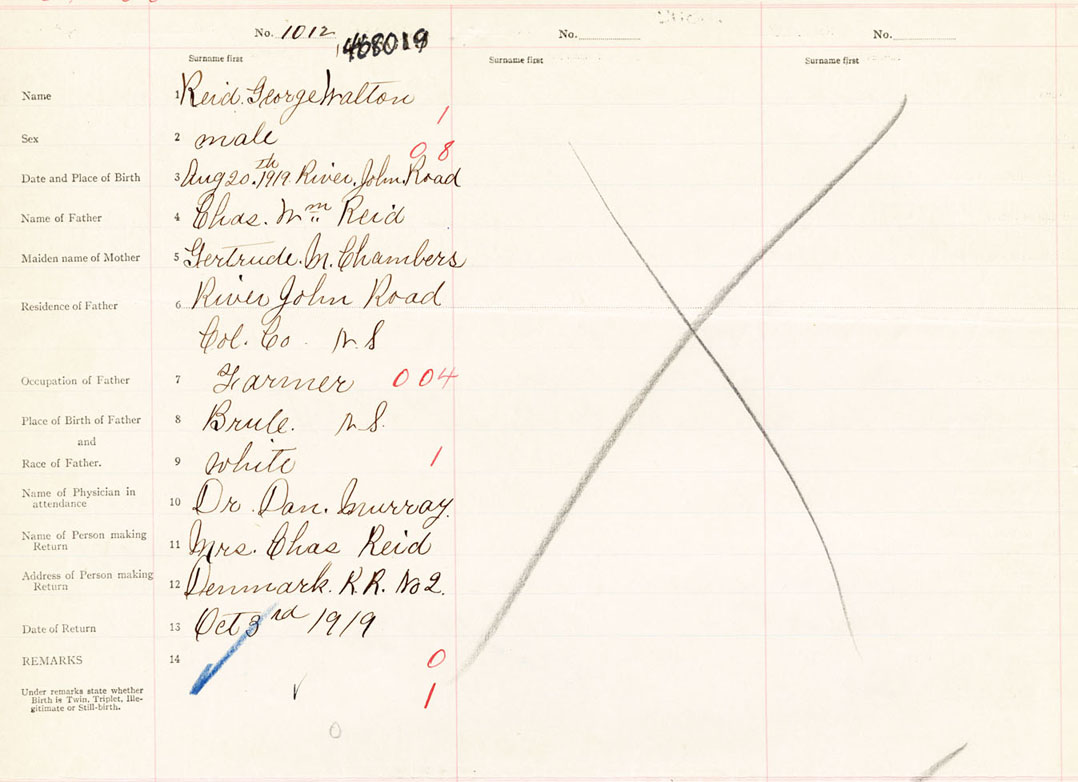 No. 1012 No. No.
468019
Surname first Surname first Surname first
Name 1 Reid. George Walton
1
Sex 2 male
0 8
Date and Place of Birth 3 Aug 20th. 1919. River John Road
Name of Father 4 Chas. Wm Reid
Maiden name of Mother 5 Gertrude. M. Chambers
Residence of Father 6 River John Road
Col. Co. N.S
Occupation of Father 7 Farmer 004
Place of Birth of Father 8 Brule. N.S.
and
Race of Father. 9 white 1
Name of Physician in
attendance 10 Dr. Dan. Murray.
Name of Person making
Return 11 Mrs. Chas Reid
Address of Person making
Return 12 Denmark. R.R. No 2.
Date of Return 13 Oct 3rd 1919
REMARKS 14 0
Under remarks state whether
Birth is Twin, Triplet, Ille-
gitimate or Still-birth.
1
0